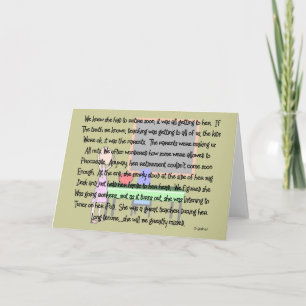 We knew she had to retire soon, it was all getting to her. If
The truth we known, teaching was getting to all of us, the kids
Were ok, it was the parents. The parents were making us
All nuts. We often wondered how some were allowed to
Procreate. Anyway, her retirement couldn't come soon
Enough. At the end, she simply stood at the side of her
Desk and just held her hands to her head. We figured she
Was going bonkers...not as it turns out, she was listening to
Tunes on her iPod. She was a great teacher during her
Long tenure...she will me greatly missed.